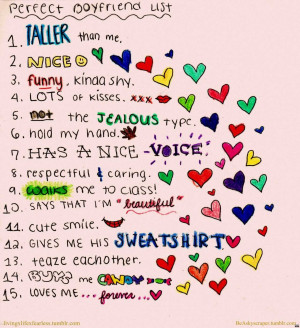 Perfect Boyfriend List
1. TALLER than me.
2. NICE
3. funny, kinda shy.
4. LOTS of kisses. xxx
5. not the JEALOUS type.
6. hold my hand.
7. HAS A NICE -VOICE-
8. respectful & caring.
9. WALKS me to class!
10. SAYS THAT I'M "beautiful"
11. cute smile.
12. GIVES ME HIS SWEATSHIRT
13. teaze eachother.
14. BUYS me CANDY
15. LOVES ME ... forever...